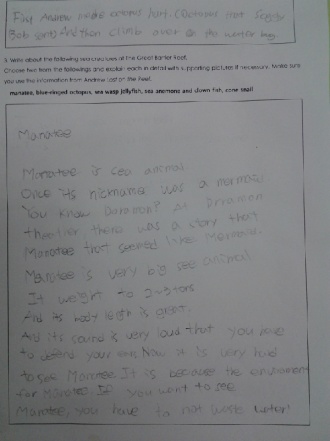 Andrew made octopus hurt. (Octopus that Squizzy
Bob And then climb over the water bag
3. Write about the following sea creatures of the Great Barrier Reef.
Choose two from the followings and explain each in detail with supporting pictures if necessary. Make sure
you use the information from Andrew Lost on the Reef.
manatee, blue-ringed octopus, sea wasp jellyfish, sea anemone and clown fish, cone snail
Manatee
Manatee is sea animal
Once its nickname was a mermaid
You know Doramon? At Doramon
theater there was a story that
Manatee that seemed like Mermaid.
Manatee is very big sea animal
It weight to 2~3tons
And its body legth is great.
And its sound is very loud that you have
to defend your ears. Now it is very hard
to see Manatee. It is because the environment
for Manatee. If you want to see
Manatee, you have to not waste water